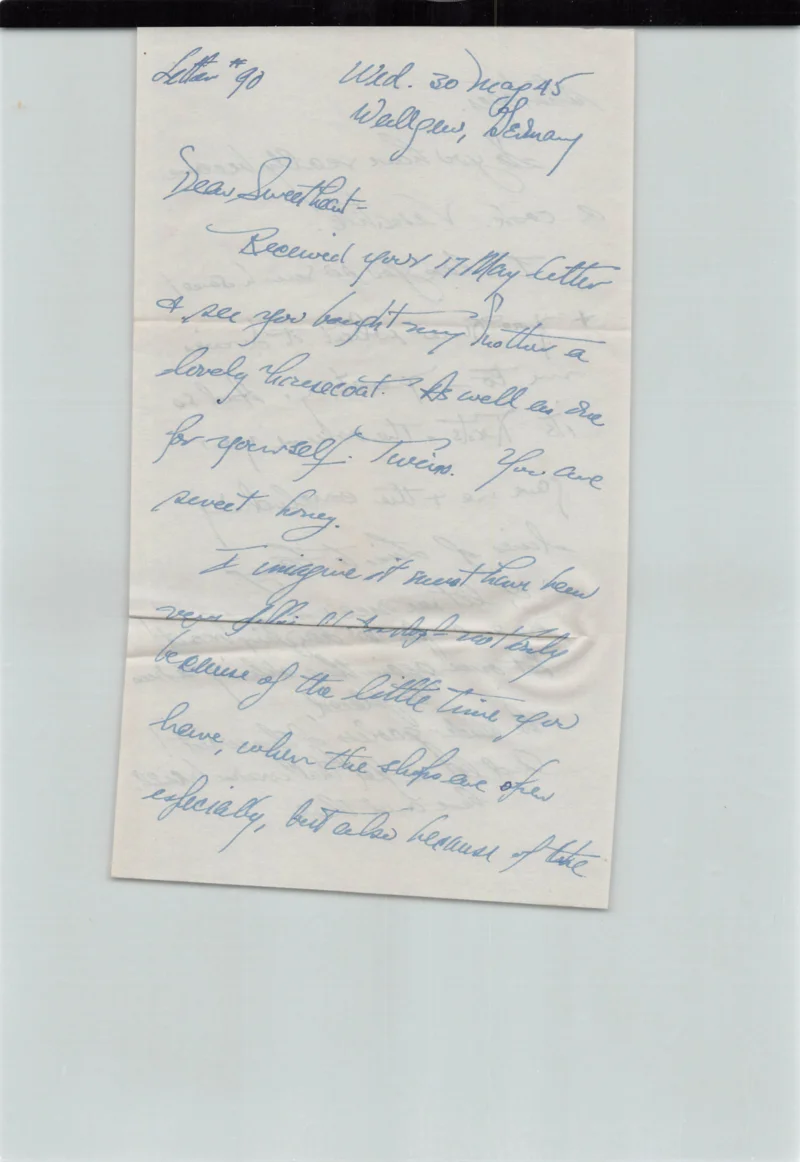 Letter #90 Wed. 30 May 45
Wallgau, Germany
Dear Sweetheart-
Received your 17 May letter
& see you bought my Mother a
lovely housecoat. As well as one
for yourself. Twins. You are
sweet honey.
I imagine it must have been
very not only
because of the little time you
have, when the shops are open
especially, but also because of the